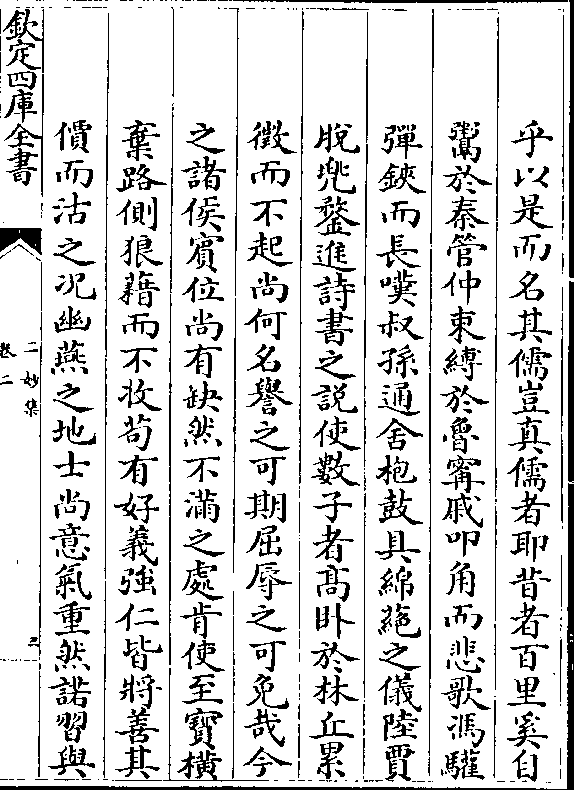 乎以是而名其儒豈真儒者耶昔者百里奚自
鬻於秦管仲束縛於魯甯戚叩角而悲歌馮驩
彈鋏而長嘆叔孫通舍枹鼓具綿蕝之儀陸賈
脫兜鍪進詩書之說使數子者髙卧於林丘累
徴而不起尚何名譽之可期屈辱之可免哉今
之諸侯賓位尚有缺然不滿之處肯使至寳横
棄路側狼藉而不收茍有好義強仁皆將善其
價而沽之况幽燕之地士尚意氣重然諾習與
欽定四庫全書
二妙集
卷二
三